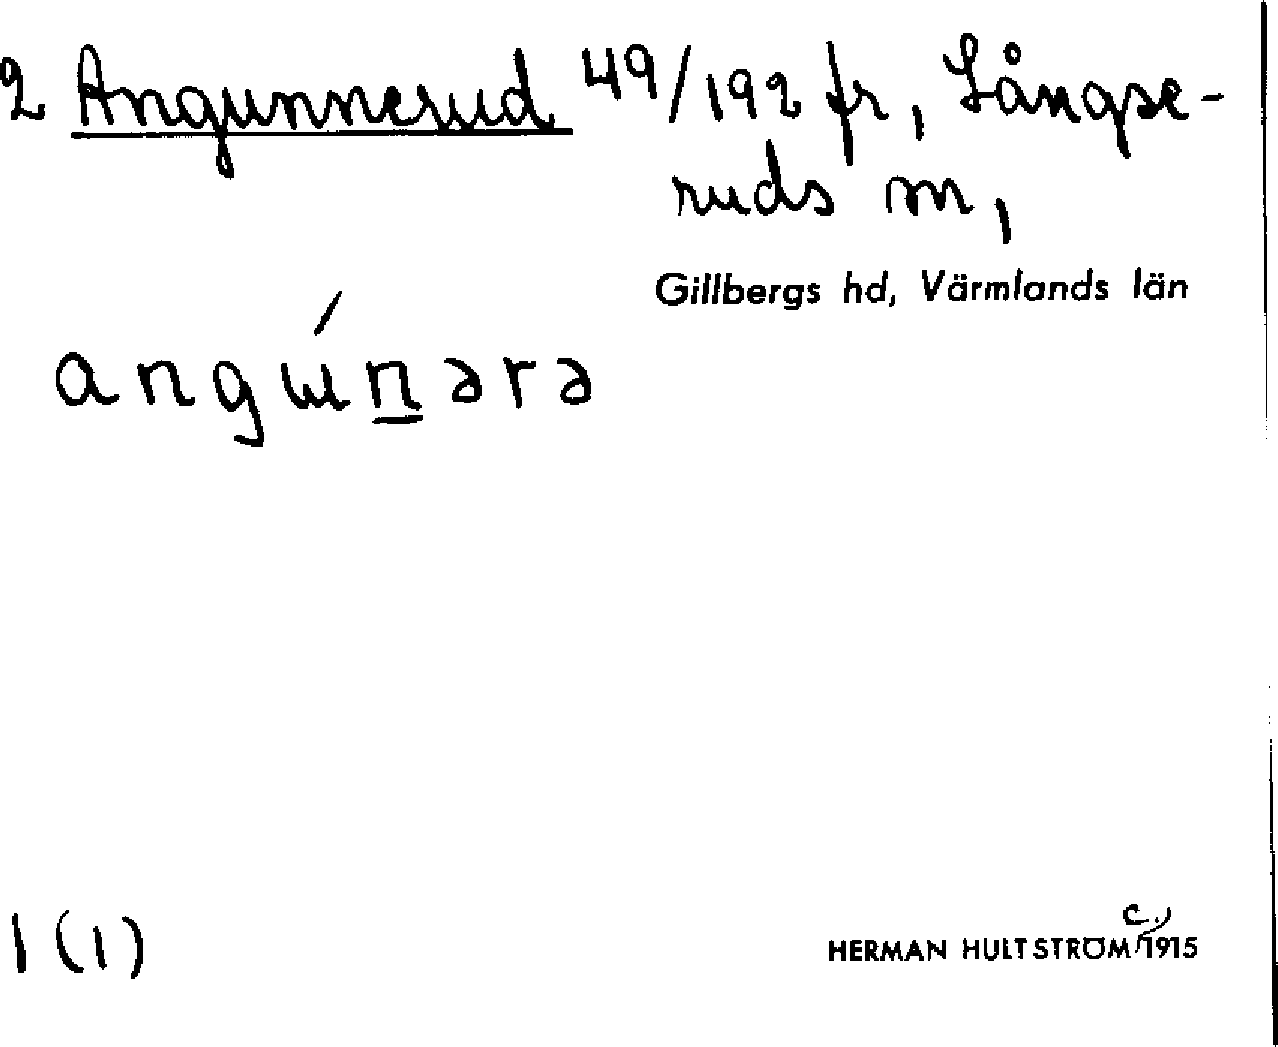 2 Angunnerud 49/192 fr, Långse-
ruds sn,
Gillbergs hd, Värmlands län
angɯ́n̲ərə
1(1)
HERMAN HULTSTRÖM c. 1915